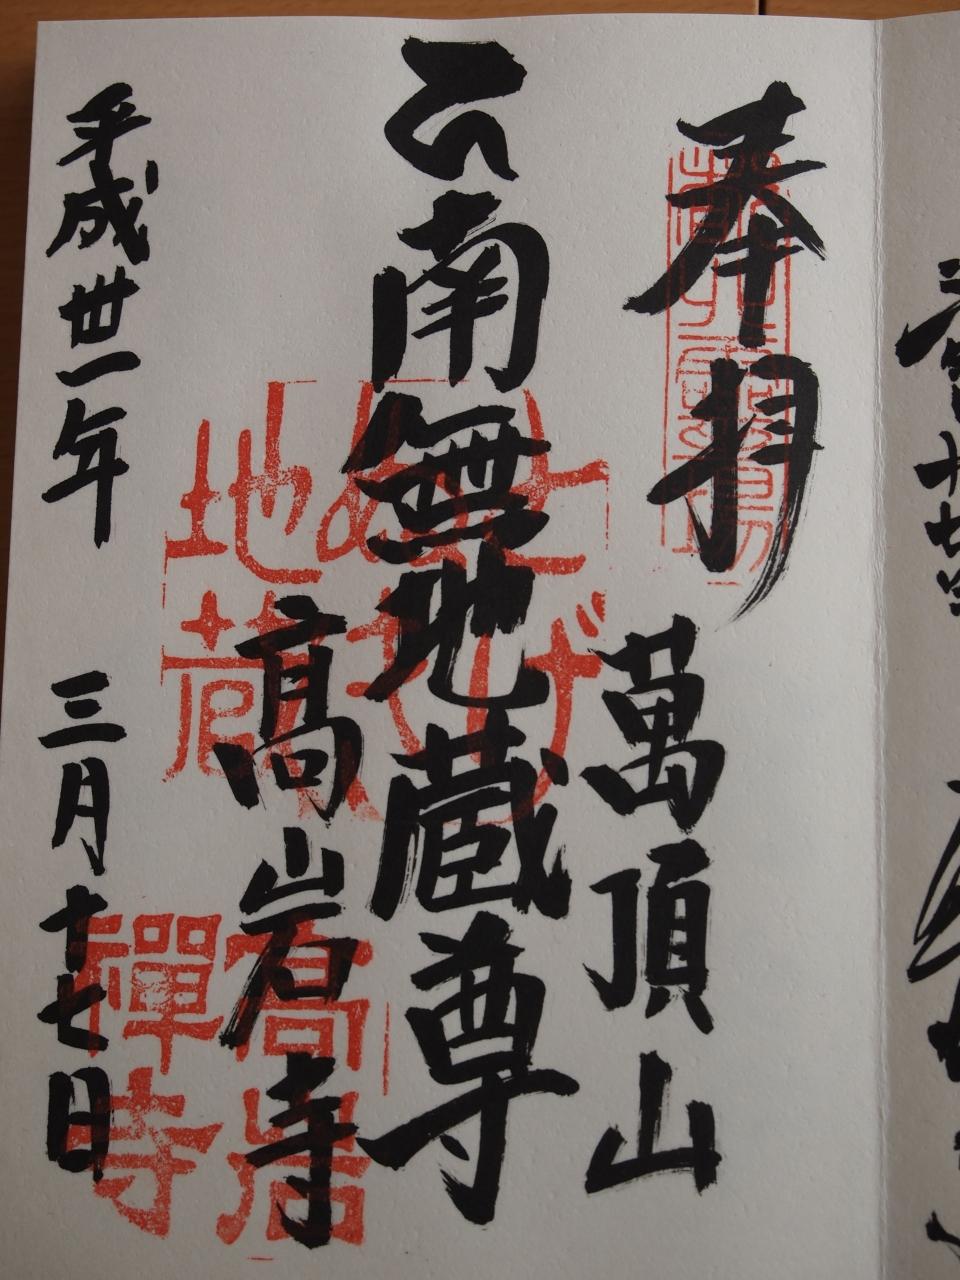 奉拝
萬頂山
南無地蔵尊
高岩寺
平成丗一年 三月十七日
とげぬき
地蔵
高岩
禅寺